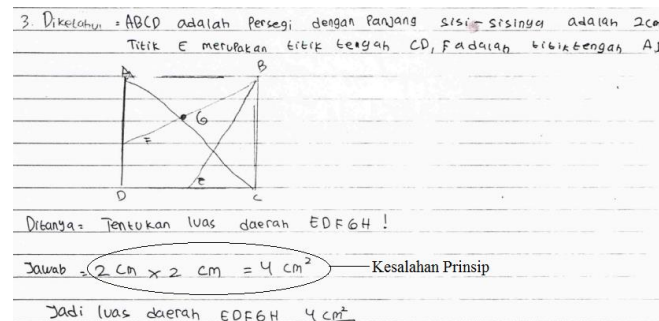 3. Diketahui = ABCD adalah Persegi dengan Panjang sisi-sisinya adalah 2c
Titik E merupakan titik tengah CD, F adalah titik tengah A
A
B
G
F
E
D
C
Ditanya = Tentukan luas daerah EDFGH !
Jawab = 2 cm x 2 cm = 4 cm²
Kesalahan Prinsip
Jadi luas daerah EDFGH 4 cm²